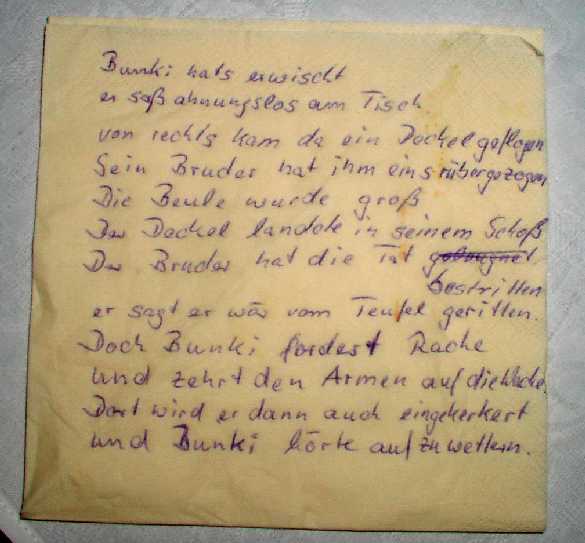 Bunki hats erwischt
er saß ahnungslos am Tisch
von rechts kam da ein Deckel geflogen
Sein Bruder hat ihm eins rübergezogen
Die Beule wurde groß
Der Deckel landete in seinem Schoß
Der Bruder hat die Tat geleugnet
bestritten
er sagt er wär vom Teufel geritten.
Doch Bunki fordert Rache
und zehrt den Armen auf die Wache.
Dort wird er dann auch eingekerkert
und Bunki hörte auf zu wettern.